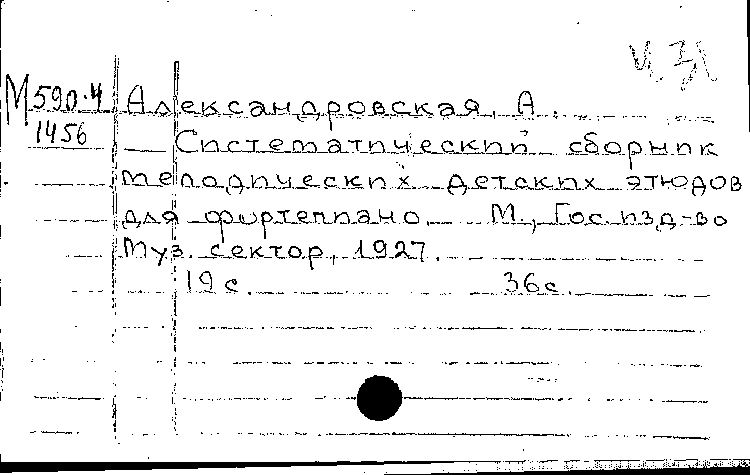 М590.4 Александровская, А.
1456 Систематический сборник
мелодических детских этюдов
для фортепиано. М., Гос. изд-во
Муз. сектор, 1927.
19 с. 36 с.